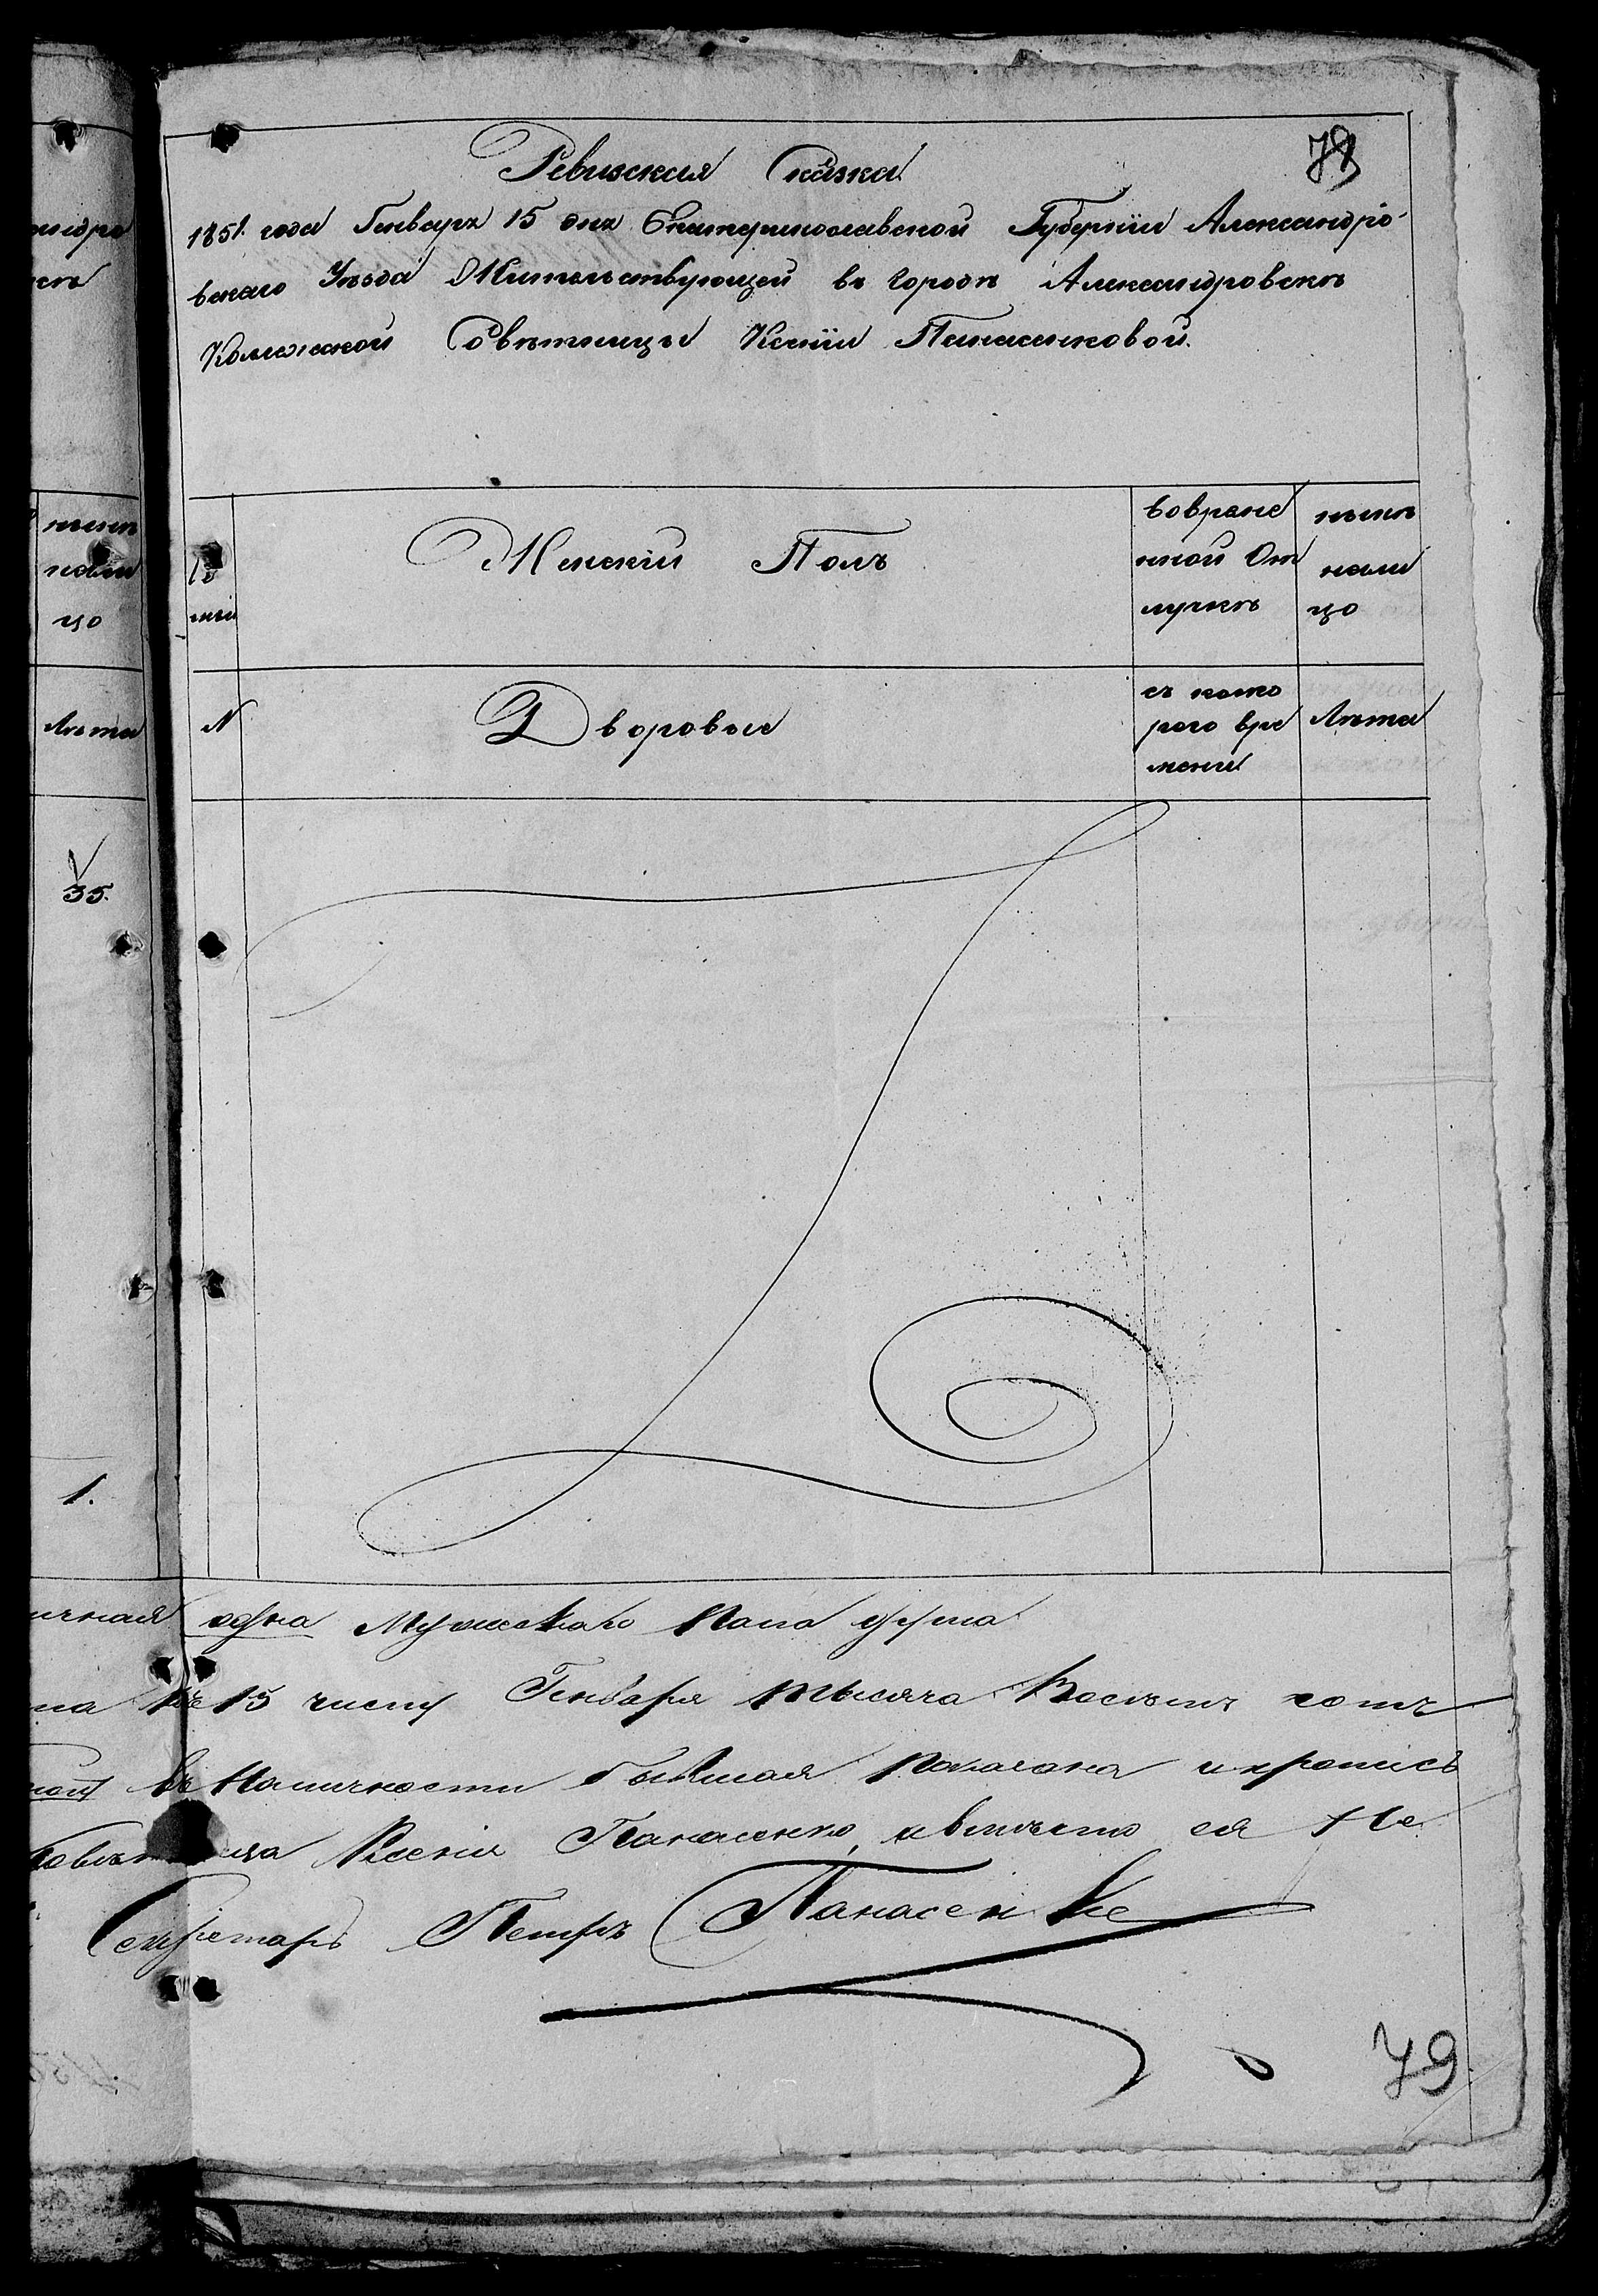 78
Ревизская Сказка
1851 года Генваря 15 дня Екатеринославской Губернiи Александро-
вскаго Уѣзда Жительствующей въ городѣ Александровскѣ
Коллежской Совѣтницы Ксенiи Панасенковой.
Женскiй Полъ
вовремѧ
нной От
лучкѣ
нынѣ
нали
цо
нынѣ
нали
цо
N
Дворовые
съ кото
раго вре
мени
Лѣта
Лѣта
35.
1.
ичная одна Мужеска Пола душа
на къ 15 числу Генваря тысяча Восемь сотъ
въ Наличности бывшая показана и пропись
Ксенiя Панасенко, а вместо ея Не
Секретарь Петръ Панасенко
79